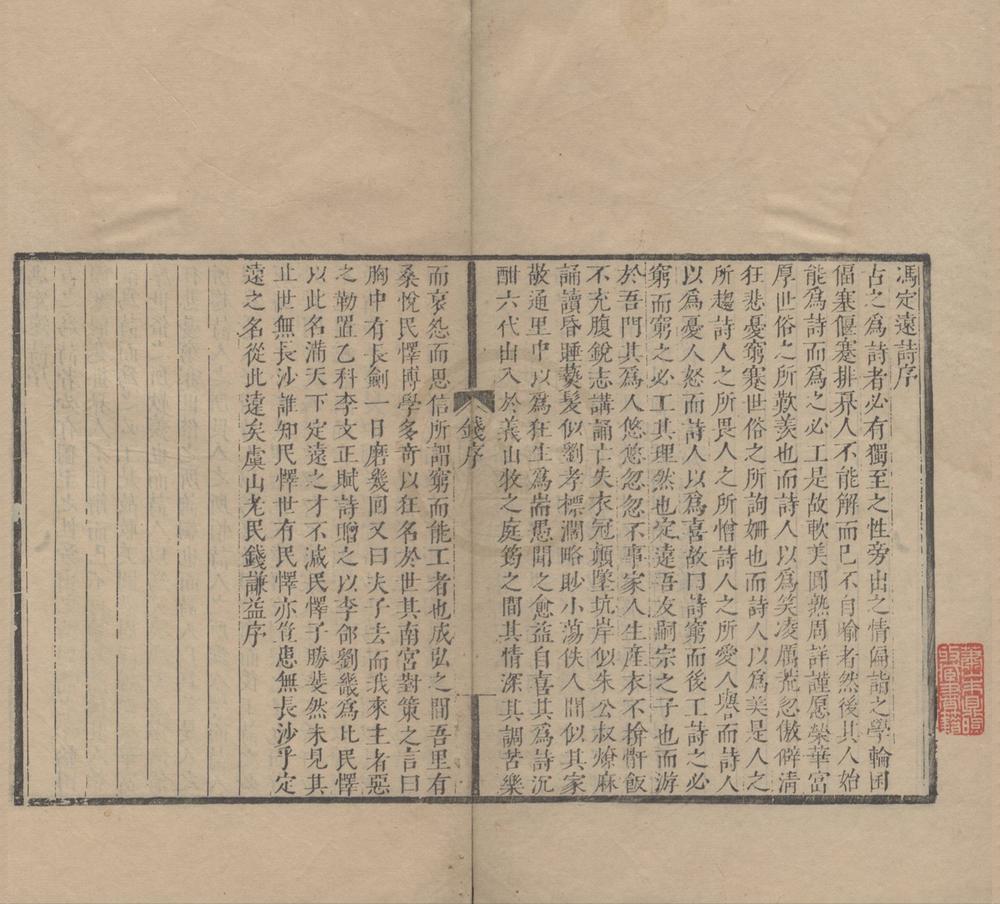 馮定遠詩序
古之為詩者必有獨至之性旁出之情偏詣之學輪囷
偪塞偃蹇排奡人不能解而已不自喻者然後其人始
能為詩而為之必工是故軟美圓熟周詳謹愿榮華富
厚世俗之所歎羨也而詩人以為笑凌厲荒忽傲僻清
狂悲憂窮蹇世俗之所詢姍也而詩人以為美是人之
所趨詩人之所畏人之所憎詩人之所愛人與吝而詩人
以為憂人怒而詩人以為喜故曰詩窮而後工詩之必
窮而窮之必工其理然也定遠吾友嗣宗之子也而游
於吾門其為人悠悠忽忽不事家人生產衣不揜骭飯
不充腹銳志講誦亡失衣冠顛墜坑岸似朱公叔燎麻
誦讀昏睡爇髮似劉孝標濶略眇小蕩佚人間似其家
敬通里中以為狂生為耑愚聞之愈益自喜其為詩沉
酣六代出入於義山牧之庭筠之間其情深其調苦樂
錢序
而哀怨而思信所謂窮而能工者也成弘之間吾里有
桑悅民懌博學多奇以狂名於世其南宮對策之言曰
胸中有長劍一日磨幾回又曰夫子去而我來主者惡
之勒置乙科李文正賦詩贈之以李郃劉蕡為比民懌
以此名滿天下定遠之才不減民懌子勝斐然未見其
止世無長沙誰知民懌世有民懌亦豈患無長沙乎定
遠之名從此遠矣虞山老民錢謙益序